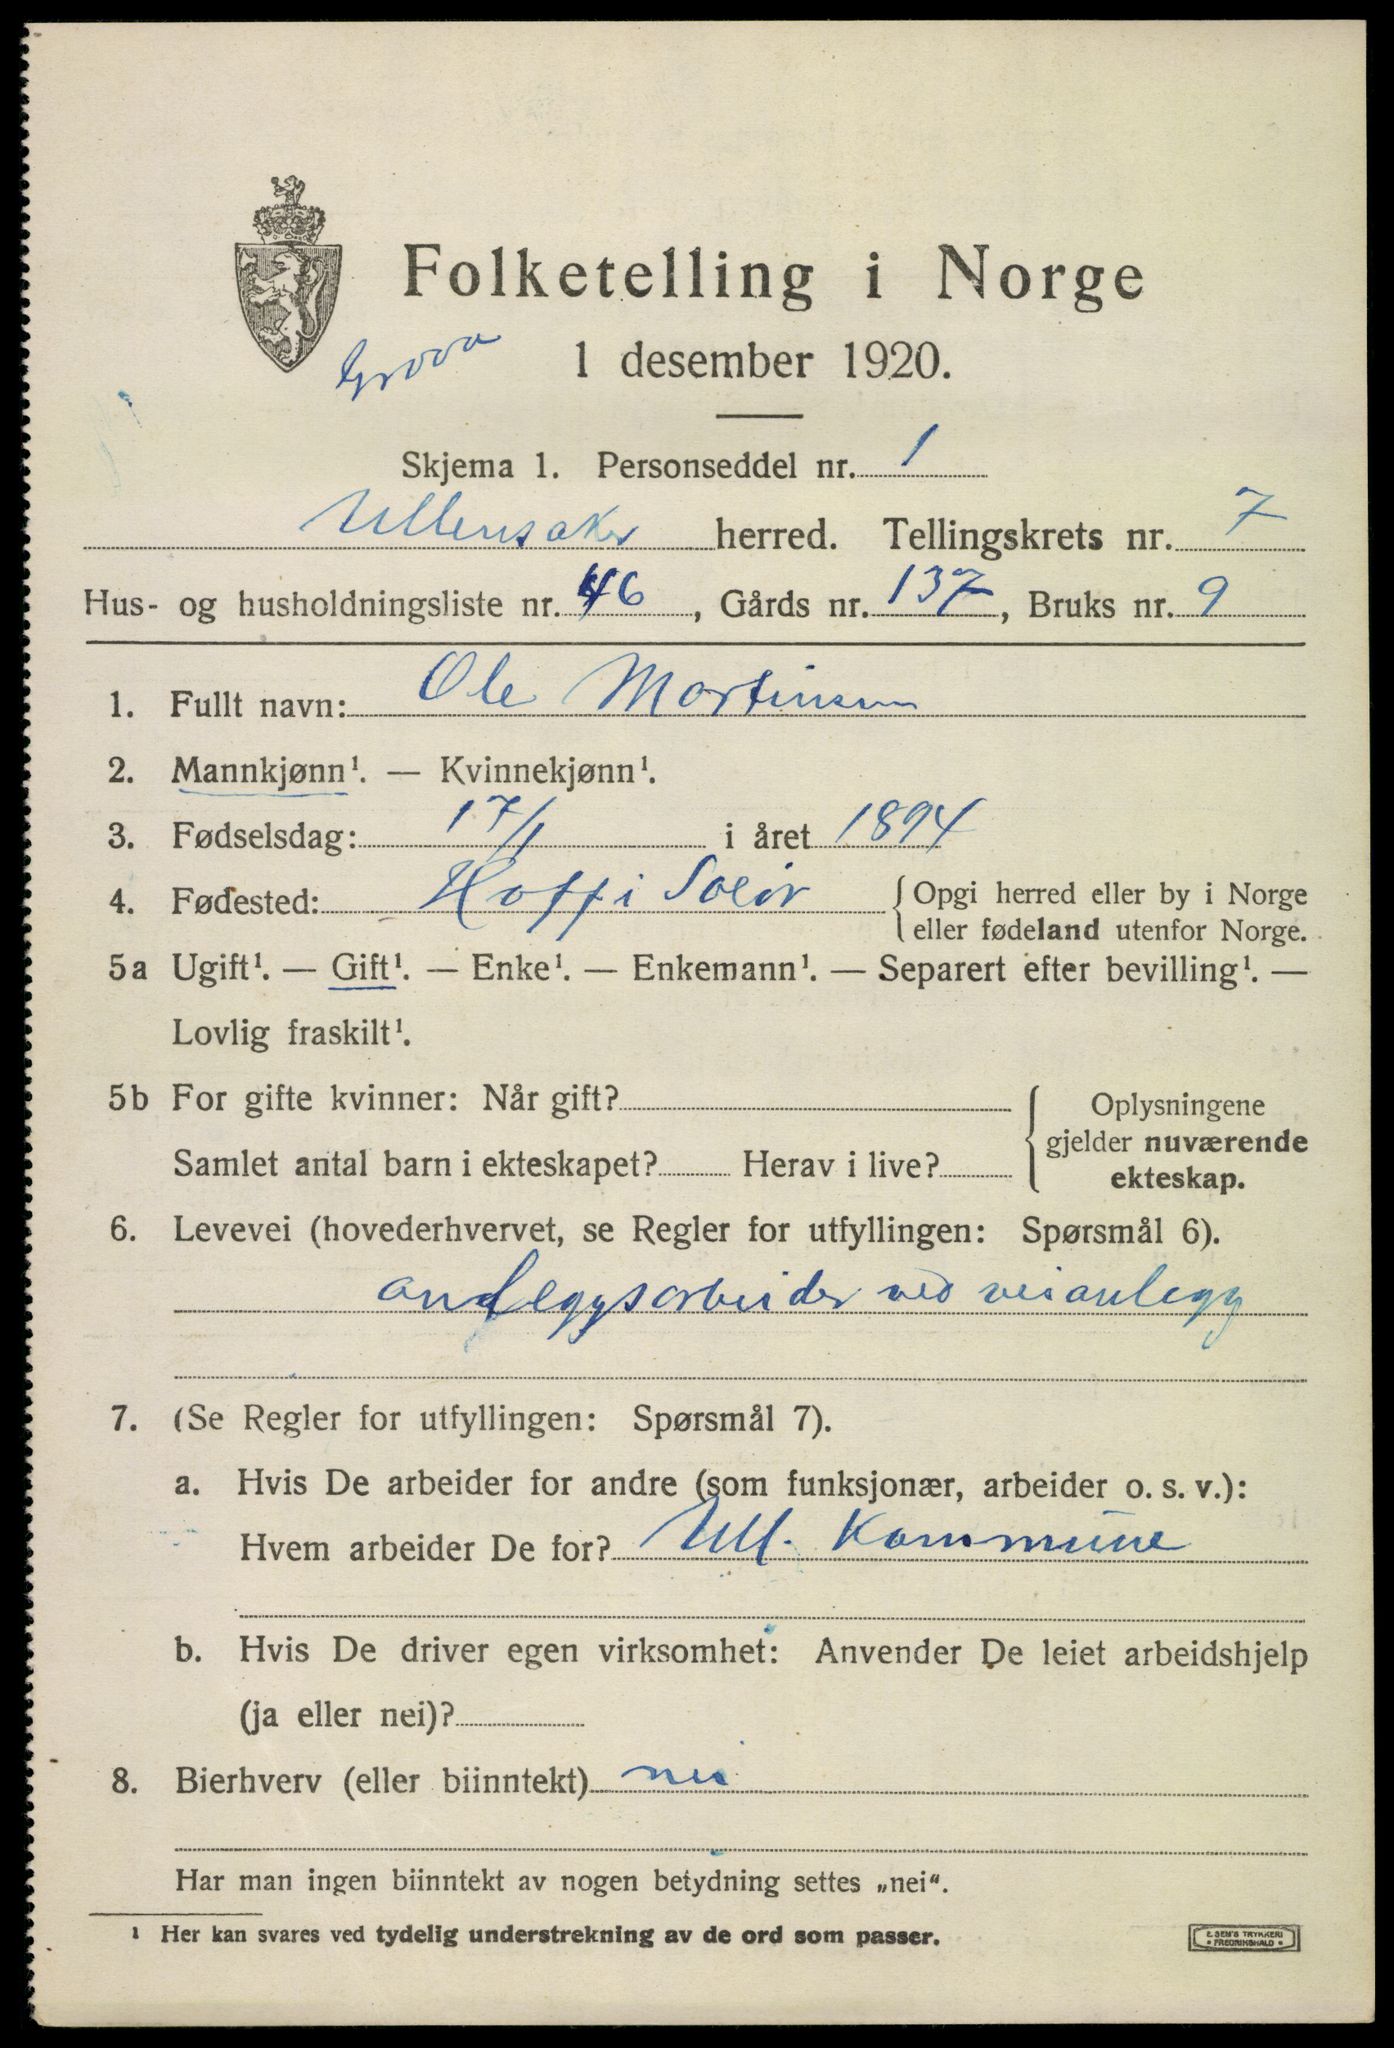 Folketelling i Norge
Grova
1 desember 1920.
Skjema 1. Personseddel nr. 1
Ullensaker herred. Tellingskrets nr. 7
Hus- og husholdningsliste nr. 46, Gårds nr. 137, Bruks nr. 9
1. Fullt navn: Ole Martinsen
2. Mannkjønn¹. — Kvinnekjønn¹.
3. Fødselsdag: 17/1 i året 1894
4. Fødested: Hoff i Solør { Opgi herred eller by i Norge
eller fødeland utenfor Norge.
5a Ugift¹. — Gift¹. — Enke¹. — Enkemann¹. — Separert efter bevilling¹. —
Lovlig fraskilt¹.
5b For gifte kvinner: Når gift? Oplysningene
gjelder nuværende
Samlet antal barn i ekteskapet? Herav i live?
ekteskap.
6. Levevei (hovederhvervet, se Regler for utfyllingen: Spørsmål 6).
anleggsarbeider ved veianlegg
7. (Se Regler for utfyllingen: Spørsmål 7).
a. Hvis De arbeider for andre (som funksjonær, arbeider o. s. v.):
Hvem arbeider De for? Ull. Kommune
b. Hvis De driver egen virksomhet: Anvender De leiet arbeidshjelp
(ja eller nei)?
8. Bierhverv (eller biinntekt) nei
Har man ingen biinntekt av nogen betydning settes „nei“.
¹ Her kan svares ved tydelig understrekning av de ord som passer.
E. SEM'S TRYKKERI
• FREDRIKSHALD •